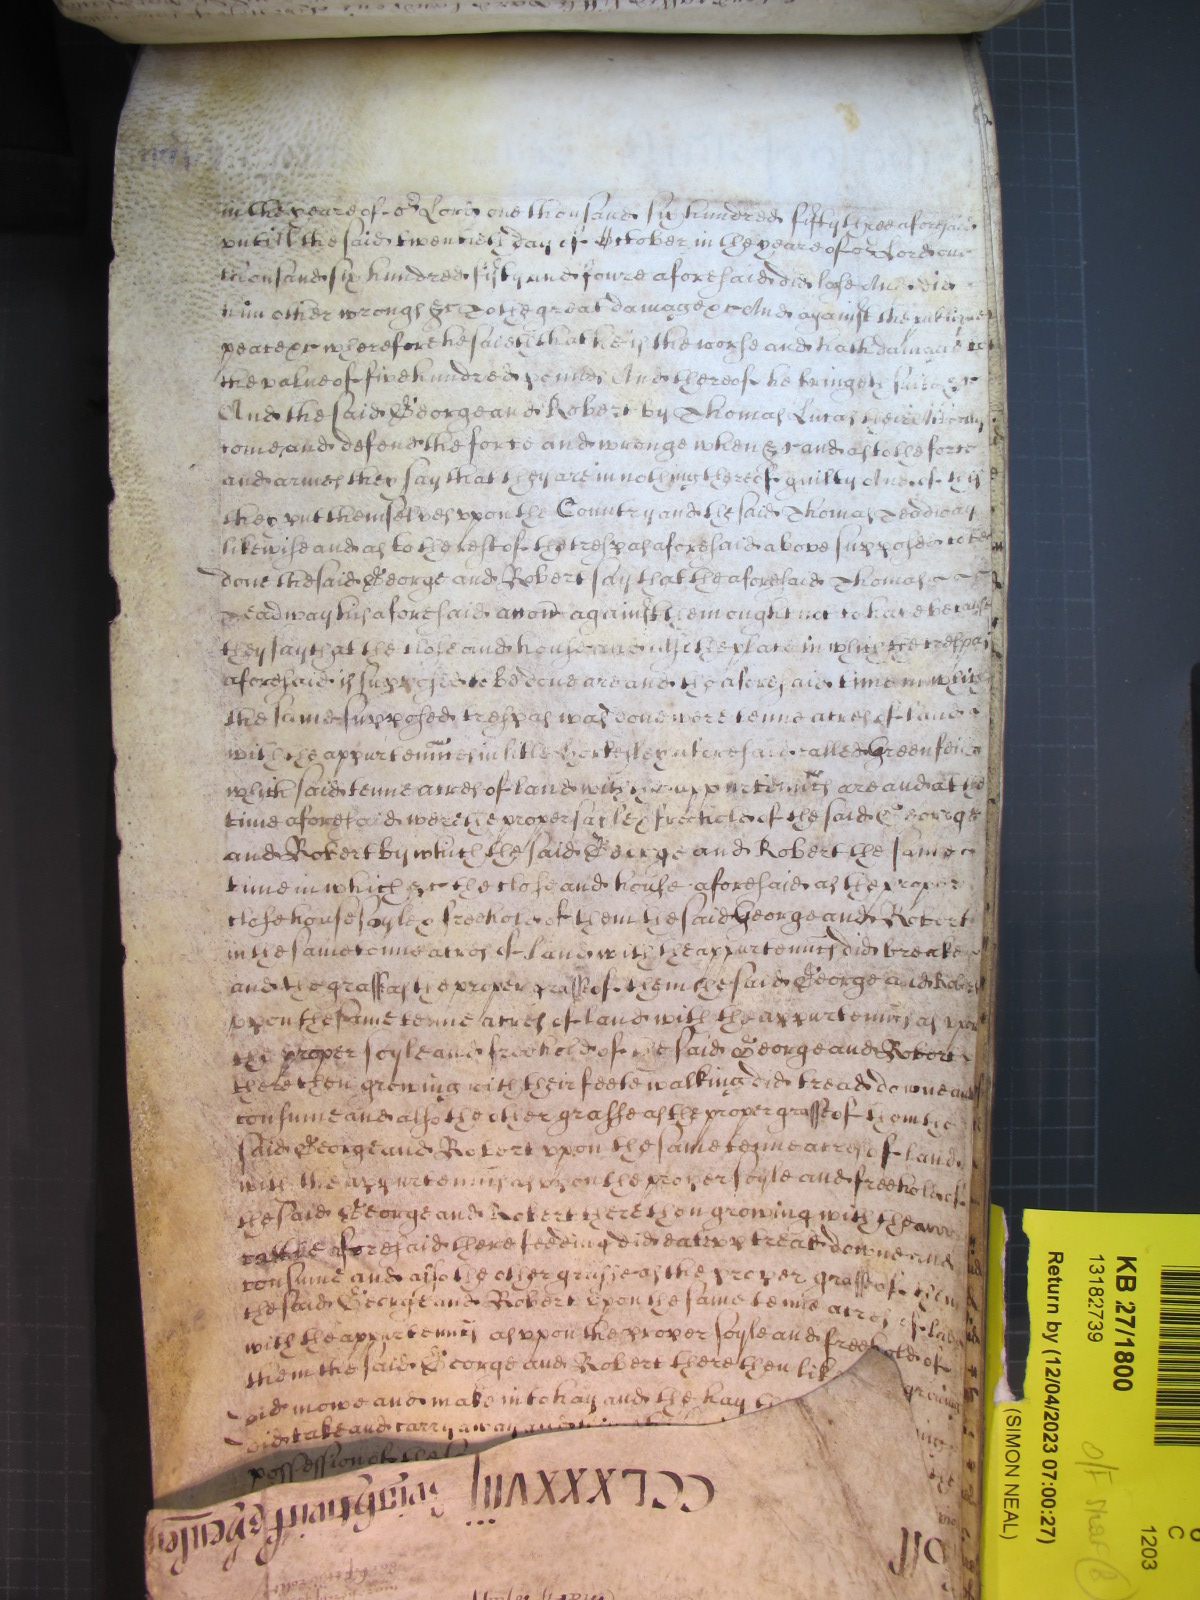 in the yeare of or Lord one thousand six hundred fifty three aforesaid
untill the said twentieth day of October in the yeare of or Lord one
thousand six hundred fifty and foure aforesaid did lose And did
him other wrongs &c To the great damage &c And against the publique
peace &c wherefore he saieth that he is the worse and hath damage to
the value of five hundred pounds And thereof he bringeth suite &c
And the said George and Robert by Thomas Lucas their Attorney
come and defend the force and wronge when &c and as to the force
and armes they say that they are in nothing thereof guilty And of this
they put themselves upon the Country and the said Thomas Readway
likewise and as to the rest of the trespas aforesaid above supposed to be
done the said George and Robert say that the aforesaid Thomas
Readway his aforesaid accon against them ought not to have because
they say that the close and house and the place in which the trespas
aforesaid is supposed to be done are and the aforesaid time in which
the same supposed trespas was done were tenne acres of land
with the appurtennces in litle Horkesley aforesaid called Greenfeild
which said tenne acres of land with the appurtennces are and at the
time aforesaid were the proper soyle & freehold of the said George
and Robert by which the said George and Robert the same
time in which &c the close and house aforesaid as the proper
close house soyle & freehold of them the said George and Robert
in the same tenne acres of land with the appurtennces did breake
and the grasse as the proper grasse of them the said George and Robert
upon the same tenne acres of land with the appurtennces as upon
the proper soyle and freehold of the said George and Robert
there then growing with their feete walking did tread downe and
consume and also the other grasse as the proper grasse of them the
said George and Robert upon the same tenne acres of land
with the appurtennces as upon the proper soyle and freehold of
the said George and Robert there then growing with the
cattle aforesaid there feeding did eate upp tread downe and
consume and also the other grasse as the proper grasse of them
the said George and Robert upon the same tenne acres of land
with the appurtennces as upon the proper soyle and freehold of
them the said George and Robert there then lik growing
did mowe and make into hay and the hay
did take and carry away and
possession of the
CCLXXXVIII
KB 27/1800
13182739
Return by (12/04/2023 07:00:27)
(SIMON NEAL)
C
1203